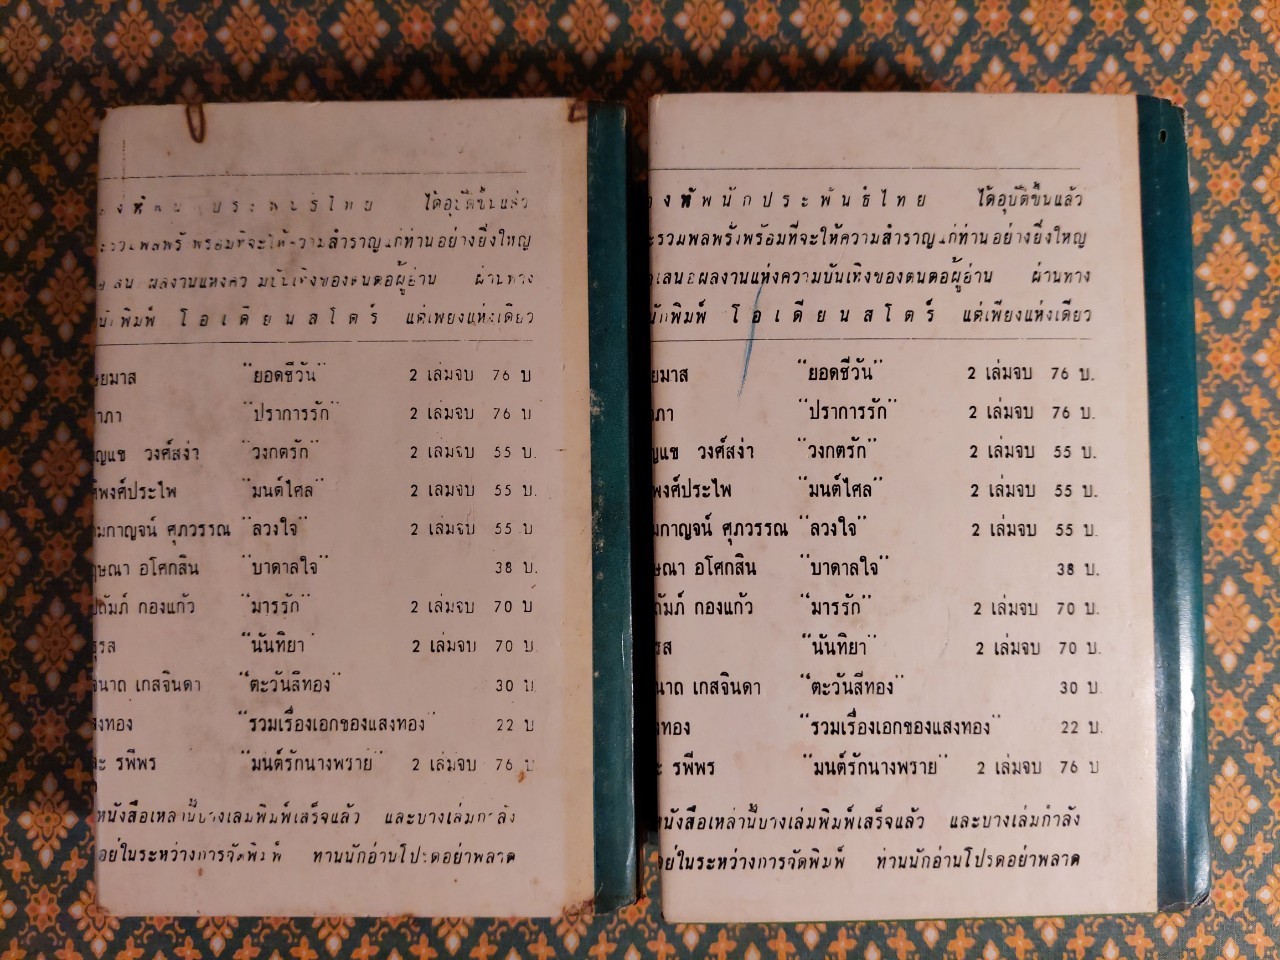 องทัพนักประพันธ์ไทย ได้อุบัติขึ้นแล้ว
พร้อมที่จะให้ความสำราญแก่ท่านอย่างยิ่งใหญ่
ผลงานแห่งความบันเทิงของตนต่อผู้อ่าน ผ่านทาง
นักพิมพ์ โอเดียนสโตร์ แต่เพียงแห่งเดียว
ษยมาส "ยอดชีวัน" 2 เล่มจบ 76 บ
าภา "ปราการรัก" 2 เล่มจบ 76 บ.
ญแข วงศ์สง่า "วงกตรัก" 2 เล่มจบ 55 บ.
พงศ์ประไพ "มนต์ไศล" 2 เล่มจบ 55 บ.
มกาญจน์ ศุภวรรณ "ลวงใจ" 2 เล่มจบ 55 บ
ฤษณา อโศกสิน "บาดาลใจ" 38 บ.
ถัมภ์ กองแก้ว "มารรัก" 2 เล่มจบ 70 บ.
ุรส "นันทิยา" 2 เล่มจบ 70 บ.
นาถ เกสจินดา "ตะวันสีทอง" 30 บ.
สงทอง "รวมเรื่องเอกของแสงทอง" 22 บ
ะ รพีพร "มนต์รักนางพราย" 2 เล่มจบ 76 บ
หนังสือเหล่านี้บางเล่มพิมพ์เสร็จแล้ว และบางเล่มกำลัง
อยู่ในระหว่างการจัดพิมพ์ ท่านนักอ่านโปรดอย่าพลาด
องทัพนักประพันธ์ไทย ได้อุบัติขึ้นแล้ว
ะรวมพลพรั่งพร้อมที่จะให้ความสำราญแก่ท่านอย่างยิ่งใหญ่
ผลงานแห่งความบันเทิงของตนต่อผู้อ่าน ผ่านทาง
นักพิมพ์ โอเดียนสโตร์ แต่เพียงแห่งเดียว
ยมาส "ยอดชีวัน" 2 เล่มจบ 76 บ.
าภา "ปราการรัก" 2 เล่มจบ 76 บ.
ญแข วงศ์สง่า "วงกตรัก" 2 เล่มจบ 55 บ.
พงศ์ประไพ "มนต์ไศล" 2 เล่มจบ 55 บ.
มกาญจน์ ศุภวรรณ "ลวงใจ" 2 เล่มจบ 55 บ.
ษณา อโศกสิน "บาดาลใจ" 38 บ.
ถัมภ์ กองแก้ว "มารรัก" 2 เล่มจบ 70 บ.
รส "นันทิยา" 2 เล่มจบ 70 บ.
นาถ เกสจินดา "ตะวันสีทอง" 30 บ.
งทอง "รวมเรื่องเอกของแสงทอง" 22 บ.
ะ รพีพร "มนต์รักนางพราย" 2 เล่มจบ 76 บ
หนังสือเหล่านี้บางเล่มพิมพ์เสร็จแล้ว และบางเล่มกำลัง
อยู่ในระหว่างการจัดพิมพ์ ท่านนักอ่านโปรดอย่าพลาด